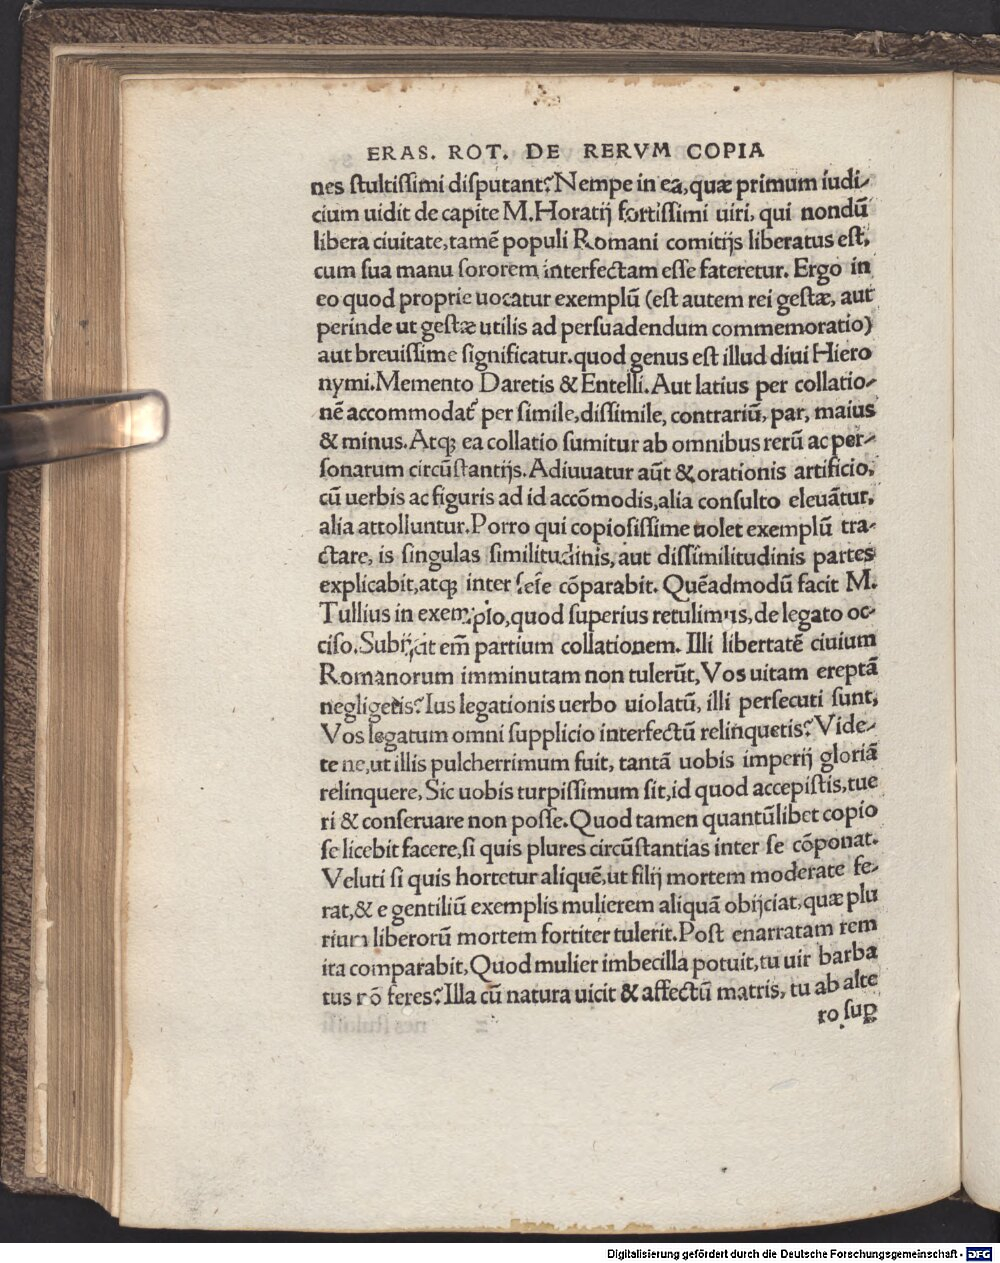 ERAS. ROT. DE RERVM COPIA
nes stultissimi disputant? Nempe in ea, quæ primum iudi-
cium uidit de capite M. Horatij fortissimi uiri, qui nondū
libera ciuitate, tamē populi Romani comitijs liberatus est,
cum sua manu sororem interfectam esse fateretur. Ergo in
eo quod proprie uocatur exemplū (est autem rei gestæ, aut
perinde ut gestæ utilis ad persuadendum commemoratio)
aut breuissime significatur. quod genus est illud diui Hiero
nymi. Memento Daretis & Entelli. Aut latius per collatio-
nē accommodat᷑ per simile, dissimile, contrariū, par, maius
& minus. Atq; ea collatio sumitur ab omnibus rerū ac per-
sonarum circūstantijs. Adiuuatur aūt & orationis artificio,
cū uerbis ac figuris ad id accōmodis, alia consulto eleuātur,
alia attolluntur. Porro qui copiosissime uolet exemplū tra-
ctare, is singulas similitudinis, aut dissimilitudinis partes
explicabit, atq; inter sese cōparabit. Quēadmodū facit M.
Tullius in exemplo, quod superius retulimus, de legato oc-
ciso. Subijcit em̄ partium collationem. Illi libertatē ciuium
Romanorum imminutam non tulerūt, Vos uitam ereptā
negligetis? Ius legationis uerbo uiolatū, illi persecuti sunt,
Vos legatum omni supplicio interfectū relinquetis? Vide-
te ne, ut illis pulcherrimum fuit, tantā uobis imperij gloriā
relinquere, Sic uobis turpissimum sit, id quod accepistis, tue
ri & conseruare non posse. Quod tamen quantūlibet copio
se licebit facere, si quis plures circūstantias inter se cōponat.
Veluti si quis hortetur aliquē, ut filij mortem moderate fe-
rat, & e gentiliū exemplis mulierem aliquā obijciat, quæ plu
rium liberorū mortem fortiter tulerit. Post enarratam rem
ita comparabit, Quod mulier imbecilla potuit, tu uir barba
tus nō feres? Illa cū natura uicit & affectū matris, tu ab alte
ro suꝑ
Digitalisierung gefördert durch die Deutsche Forschungsgemeinschaft - DFG